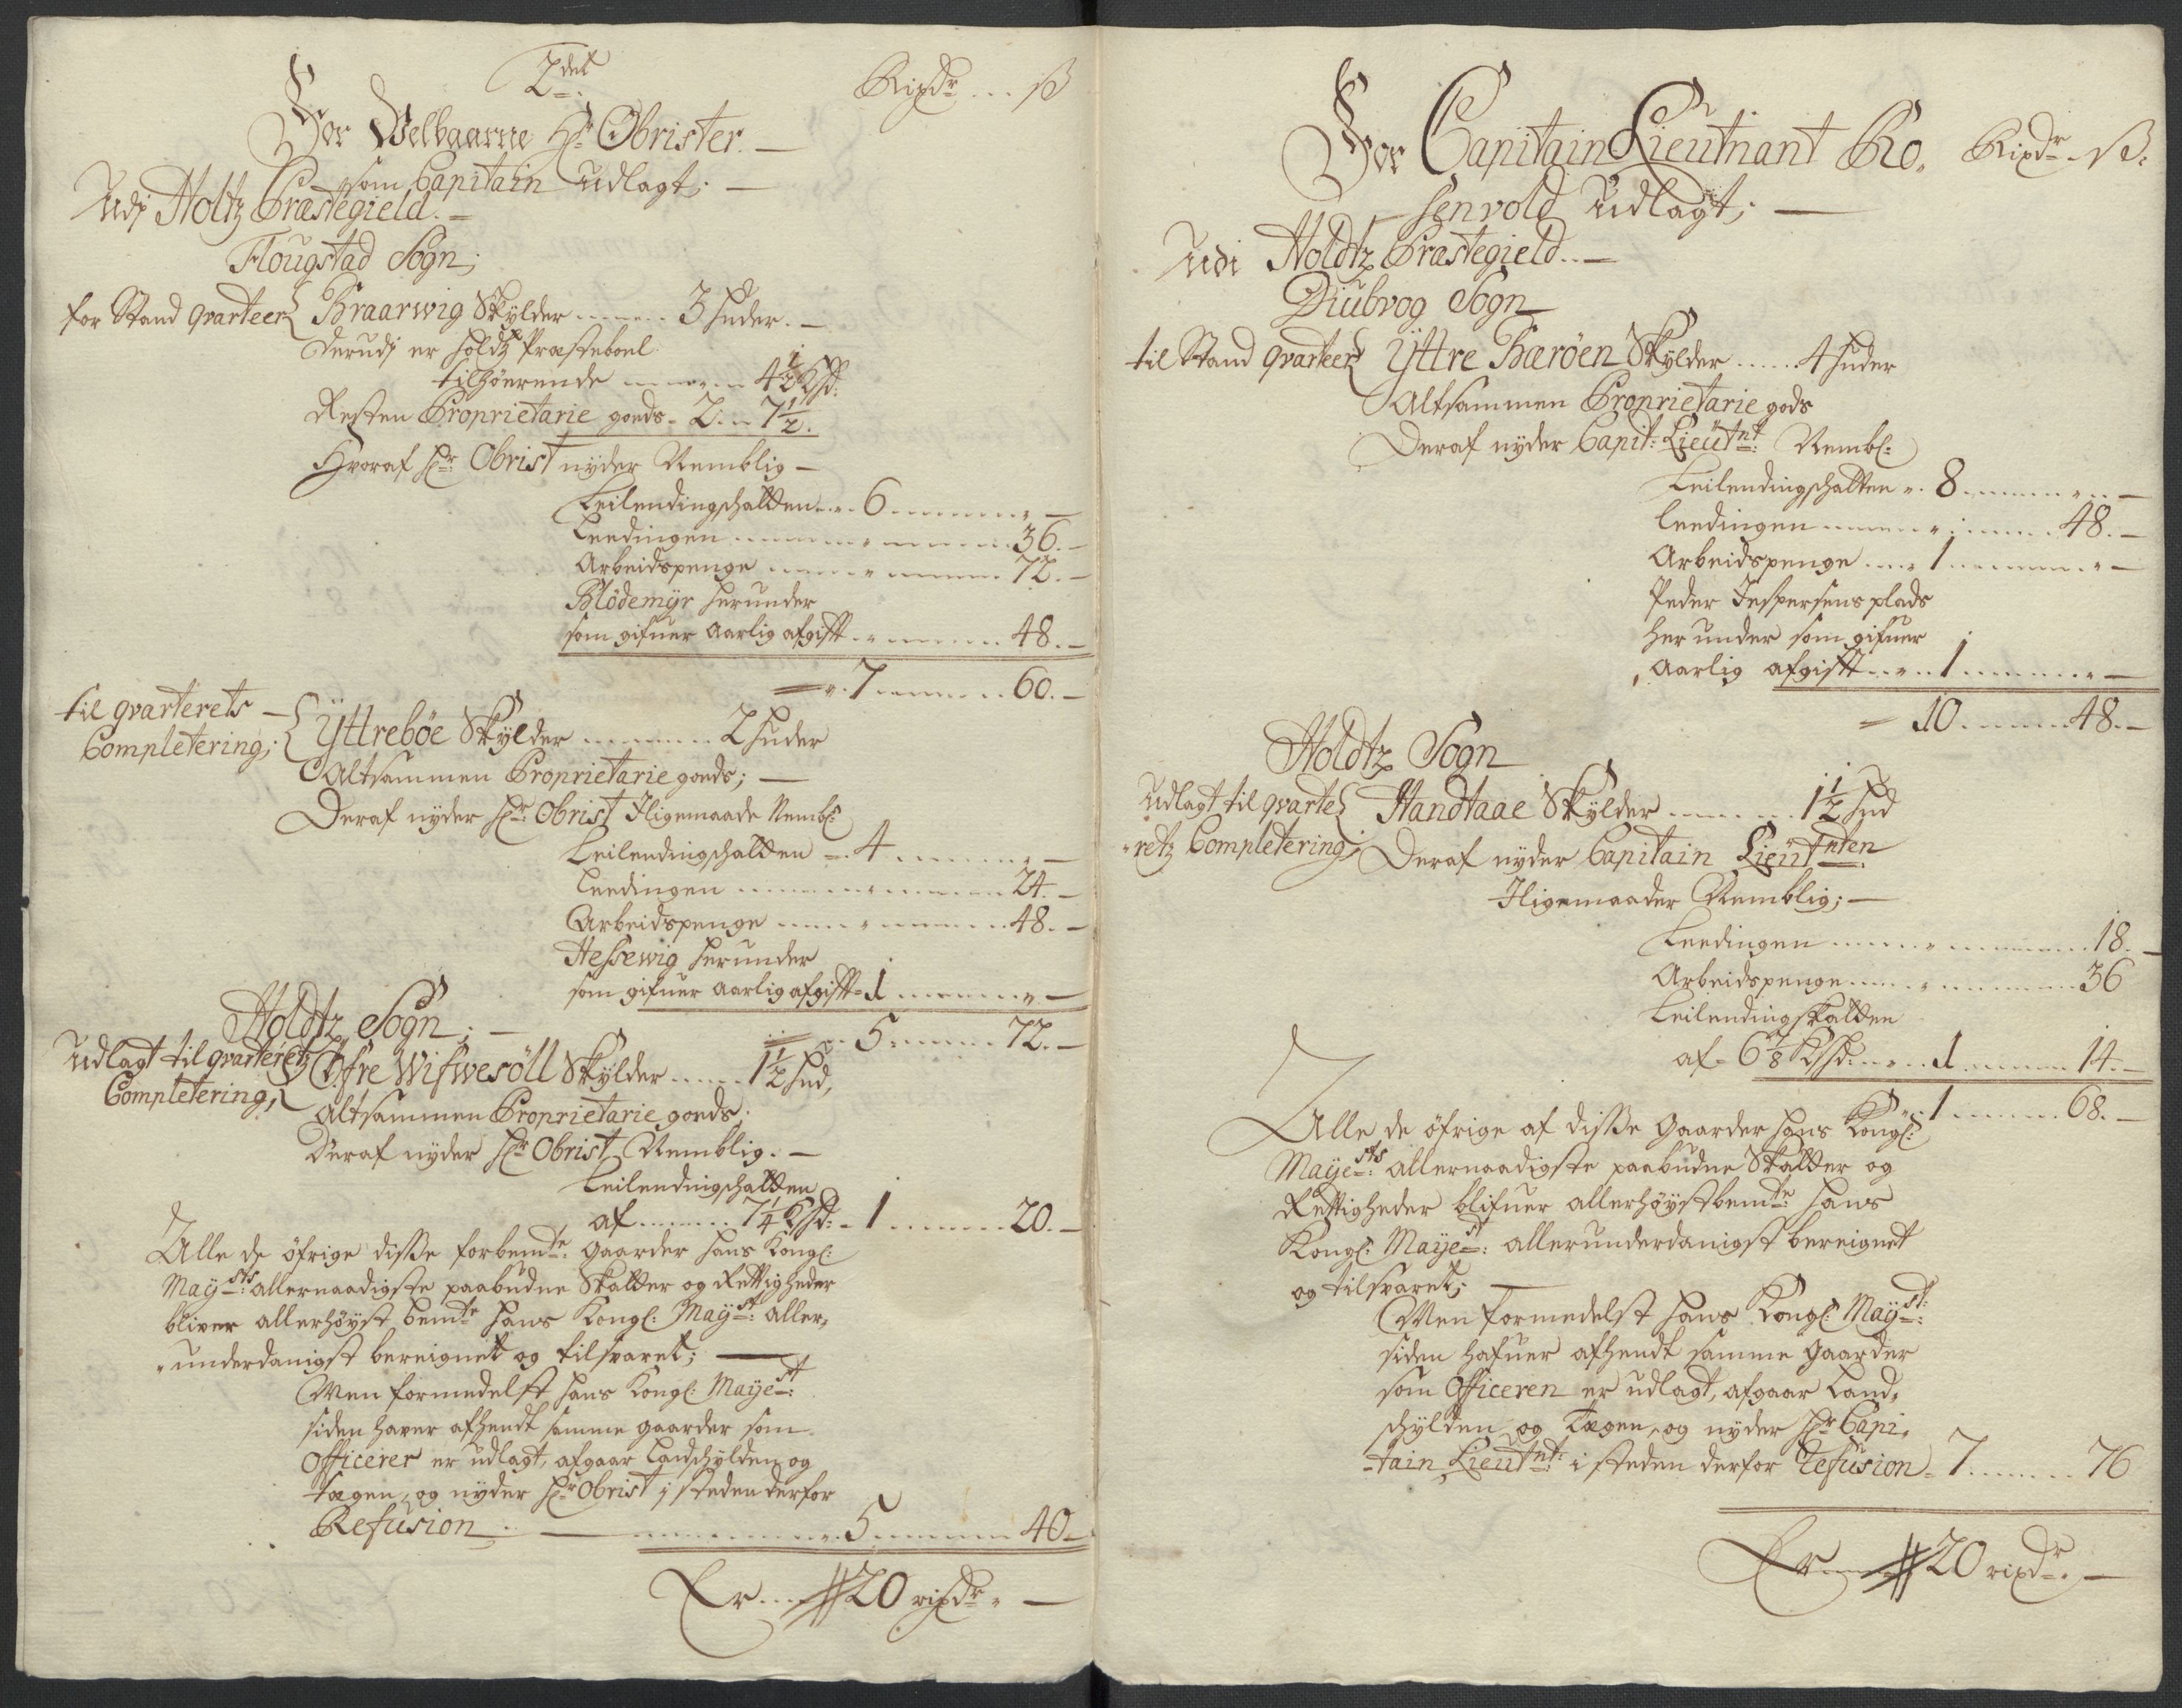 2det
Rixdr ... ß
For Welbaarne Hr: Obrister. —
som Capitain Udlagt; —
Udj Holtz Præstegield. —
Flougstad Sogn;
for Stand qvarteer Braarwig Skylder ...... 3 huder. —
Derudj er Holdtz Præsteboel
tilhöerende ...... 4½ Kshd:
Resten Proprietarie goeds - 2. — 7½.
Hvoraf Hr: Obrist nyder Nemblig —
Leilendingschatten ... 6 ...... —
Leedingen ...... 36. —
Arbeidspenge ...... 72. —
Blödemyr herunder
som gifuer Aarlig afgifft ...... 48. —
7 ...... 60. —
til qvarterets —
Completering; Yttreböe Skylder ...... 2 huder
Altsammen Proprietarie goeds; —
Deraf nyder Hr: Obrist Jligemaade Nembl:
Leilendingschatten — 4 ...... —
Leedingen ...... 24. —
Arbeidspenge ...... 48. —
Hessewig herunder
som gifuer Aarlig afgifft - 1 ...... —
5 ...... 72. —
Holdtz Sogn; —
Udlagt til qvarteretz Öfre Wifwesöll Skylder ..... 1½ hud,
Completering; Altsammen Proprietarie goeds;
Deraf nyder Hr: Obrist Nemblig. —
Leilendingschatten
af ....... 7¼ Kshd: - 1 ....... 20. —
Alle de öfrige disse forbemte: gaarder hans Kongl:
Maysts: allernaadigste paabudne Skatter og Rettigheder
bliver allerhöyst bemte hans Kongl: Mayst: aller,
underdanigst bereignet og tilsvaret; —
Men formedelst hans Kongl: Mayest:
siden haver afhendt samme gaarder som
Officerer er udlagt, afgaar Landschylden og
tægen, og nyder Hr: Obrist j steden derfor
Refusion ...... 5 ...... 40 —
Er .... # 20 rixdr. —
For Capitain Lieutnant Ro, Rixdr - ß:
senvold Udlagt; —
Udi Holdtz Præstegield .. —
Diubvog Sogn
til Stand qvarteer Yttre Bæröen Skylder ..... 4 huder
Altsammen Proprietarie gods
Deraf nyder Capit: Lieutnt: Nembl:
Leilendingschatten - 8 ...... —
Leedingen ...... 48. —
Arbeidspenge .... 1 ...... —
Peder Jespersens plads
her under som gifuer
Aarlig afgifft .... 1 ...... —
10 ...... 48. —
Holdtz Sogn
Udlagt til qvarte Handtaae Skylder ...... 1½ hud
retz Completering; Deraf nyder Capitain Lieutnten
Jligemaader Nemblig; —
Leedingen ...... 18. —
Arbeidspenge ...... 36
Leilendingskatten
af - 6⅞ Kshd: .... 1 ...... 14. —
1 ...... 68. —
Alle de öfrige af disse gaarder hans Kongl:
Mayests: allernaadigste paabudne Skatter og
Rettigheder blifuer allerhöystbemte: hans
Kongl: Mayest: allerunderdanigst bereignet
og tilsvaret; —
Men formedelst hans Kongl: Mayst:
siden hafuer afhendt samme gaarder
som Officeren er udlagt, afgaar Land,
schylden og Tægen, og nyder Hr Capi,
tain Lieutnt: i steden derfor Refusion - 7 ...... 76
Er .... # 20 rixdr. —